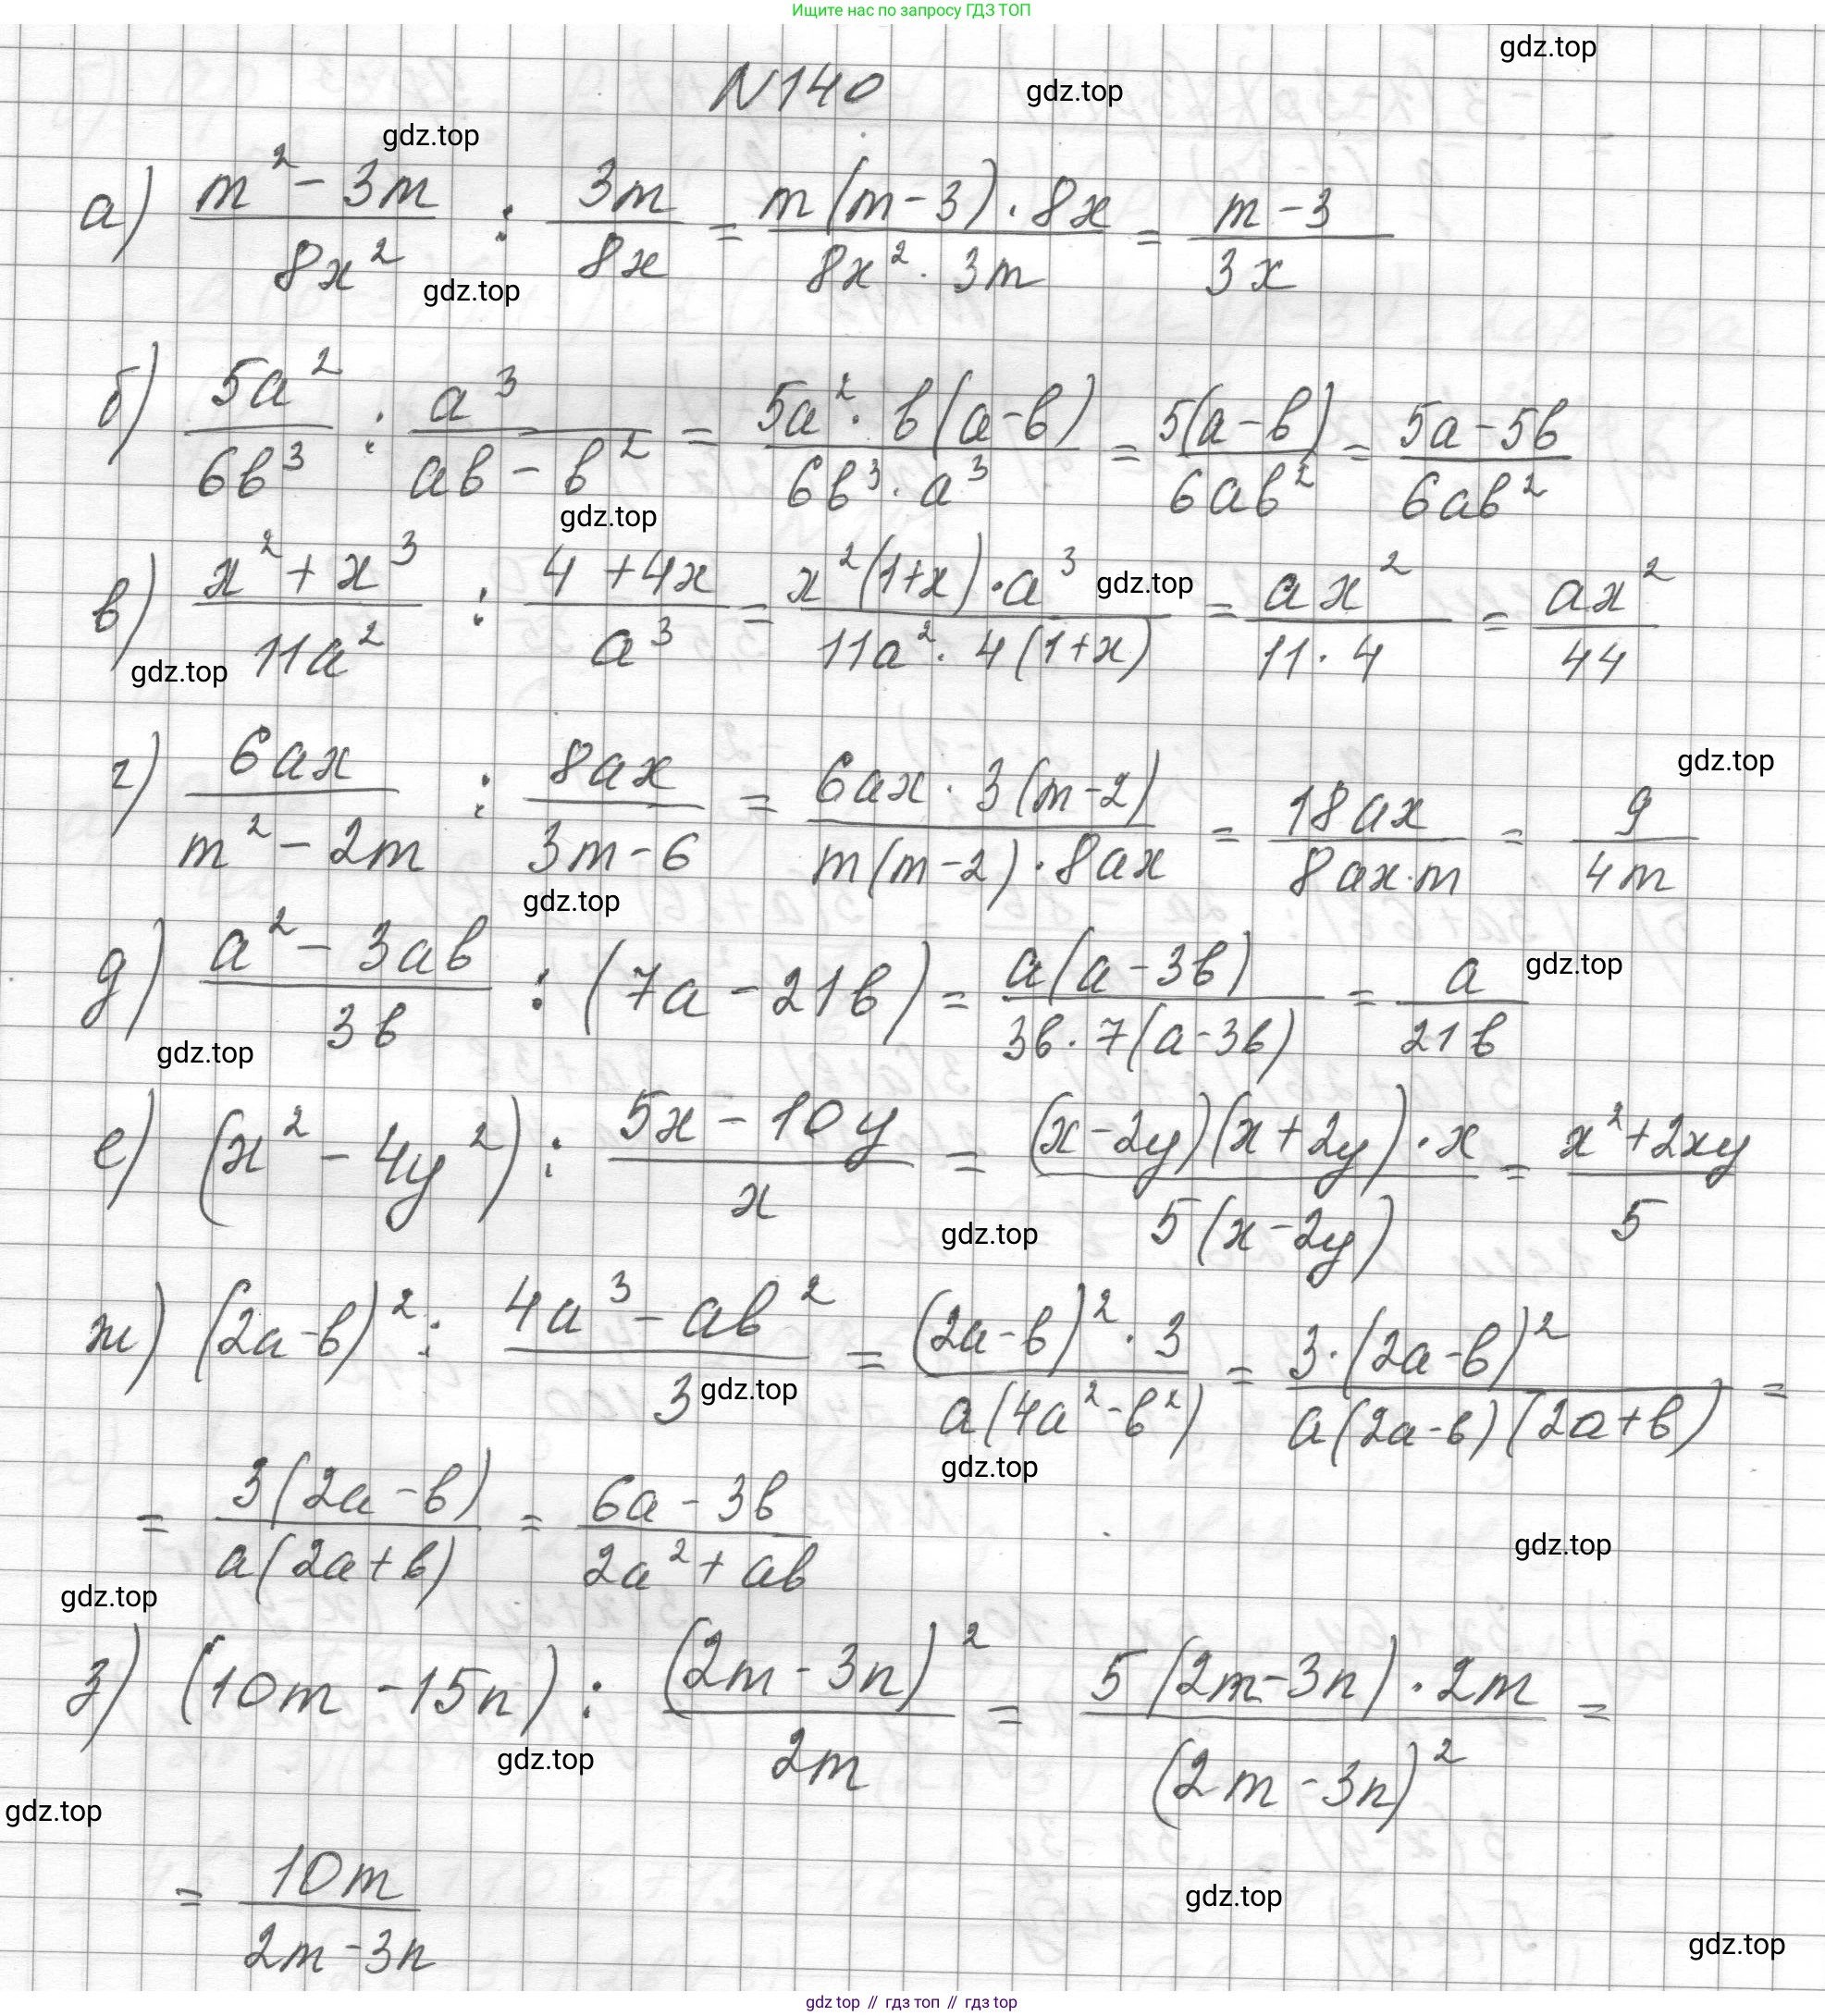 Ищите нас по запросу ГДЗ ТОП
gdz.top
N140
gdz.top
gdz.top
а) (m² - 3m)/(8x²) : (3m)/(8x) = (m(m-3)·8x)/(8x²·3m) = (m-3)/(3x)
gdz.top
б) (5a²)/(6b³) : (a³)/(ab - b²) = (5a²·b(a-b))/(6b³·a³) = (5(a-b))/(6ab²) = (5a-5b)/(6ab²)
gdz.top
в) (x² + x³)/(11a²) : (4+4x)/(a³) = (x²(1+x)·a³)/(11a²·4(1+x)) = (ax²)/(11·4) = (ax²)/(44)
gdz.top
gdz.top
г) (6ax)/(m² - 2m) : (8ax)/(3m-6) = (6ax·3(m-2))/(m(m-2)·8ax) = (18ax)/(8ax·m) = 9/(4m)
gdz.top
gdz.top
д) (a² - 3ab)/(3b) : (7a - 21b) = (a(a-3b))/(3b·7(a-3b)) = a/(21b)
gdz.top
gdz.top
е) (x² - 4y²) : (5x - 10y)/x = ((x-2y)(x+2y)·x)/(5(x-2y)) = (x²+2xy)/5
gdz.top
ж) (2a-b)² : (4a³ - ab²)/3 = ((2a-b)²·3)/(a(4a²-b²)) = (3·(2a-b)²)/(a(2a-b)(2a+b)) =
gdz.top
gdz.top
= (3(2a-b))/(a(2a+b)) = (6a-3b)/(2a²+ab)
gdz.top
gdz.top
з) (10m - 15n) : ((2m-3n)²)/(2m) = (5(2m-3n)·2m)/((2m-3n)²) =
gdz.top
gdz.top
= (10m)/(2m-3n)
gdz.top
gdz.top
gdz top // гдз топ // gdz top